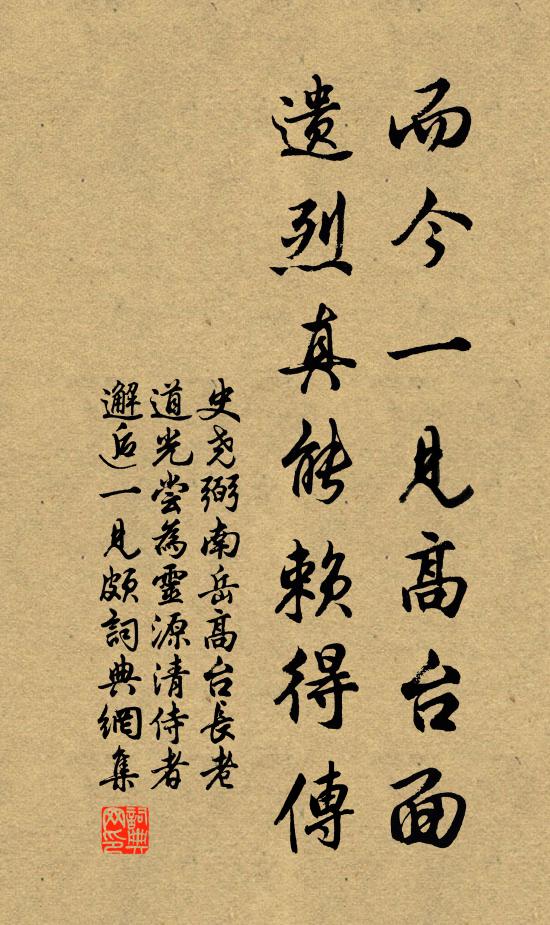 而今一見高台面
遺烈真能賴得傳
史尧弼南岳高台長老
道光尝為靈源清侍者
邂逅一見頗詞典網集
詞典
网印